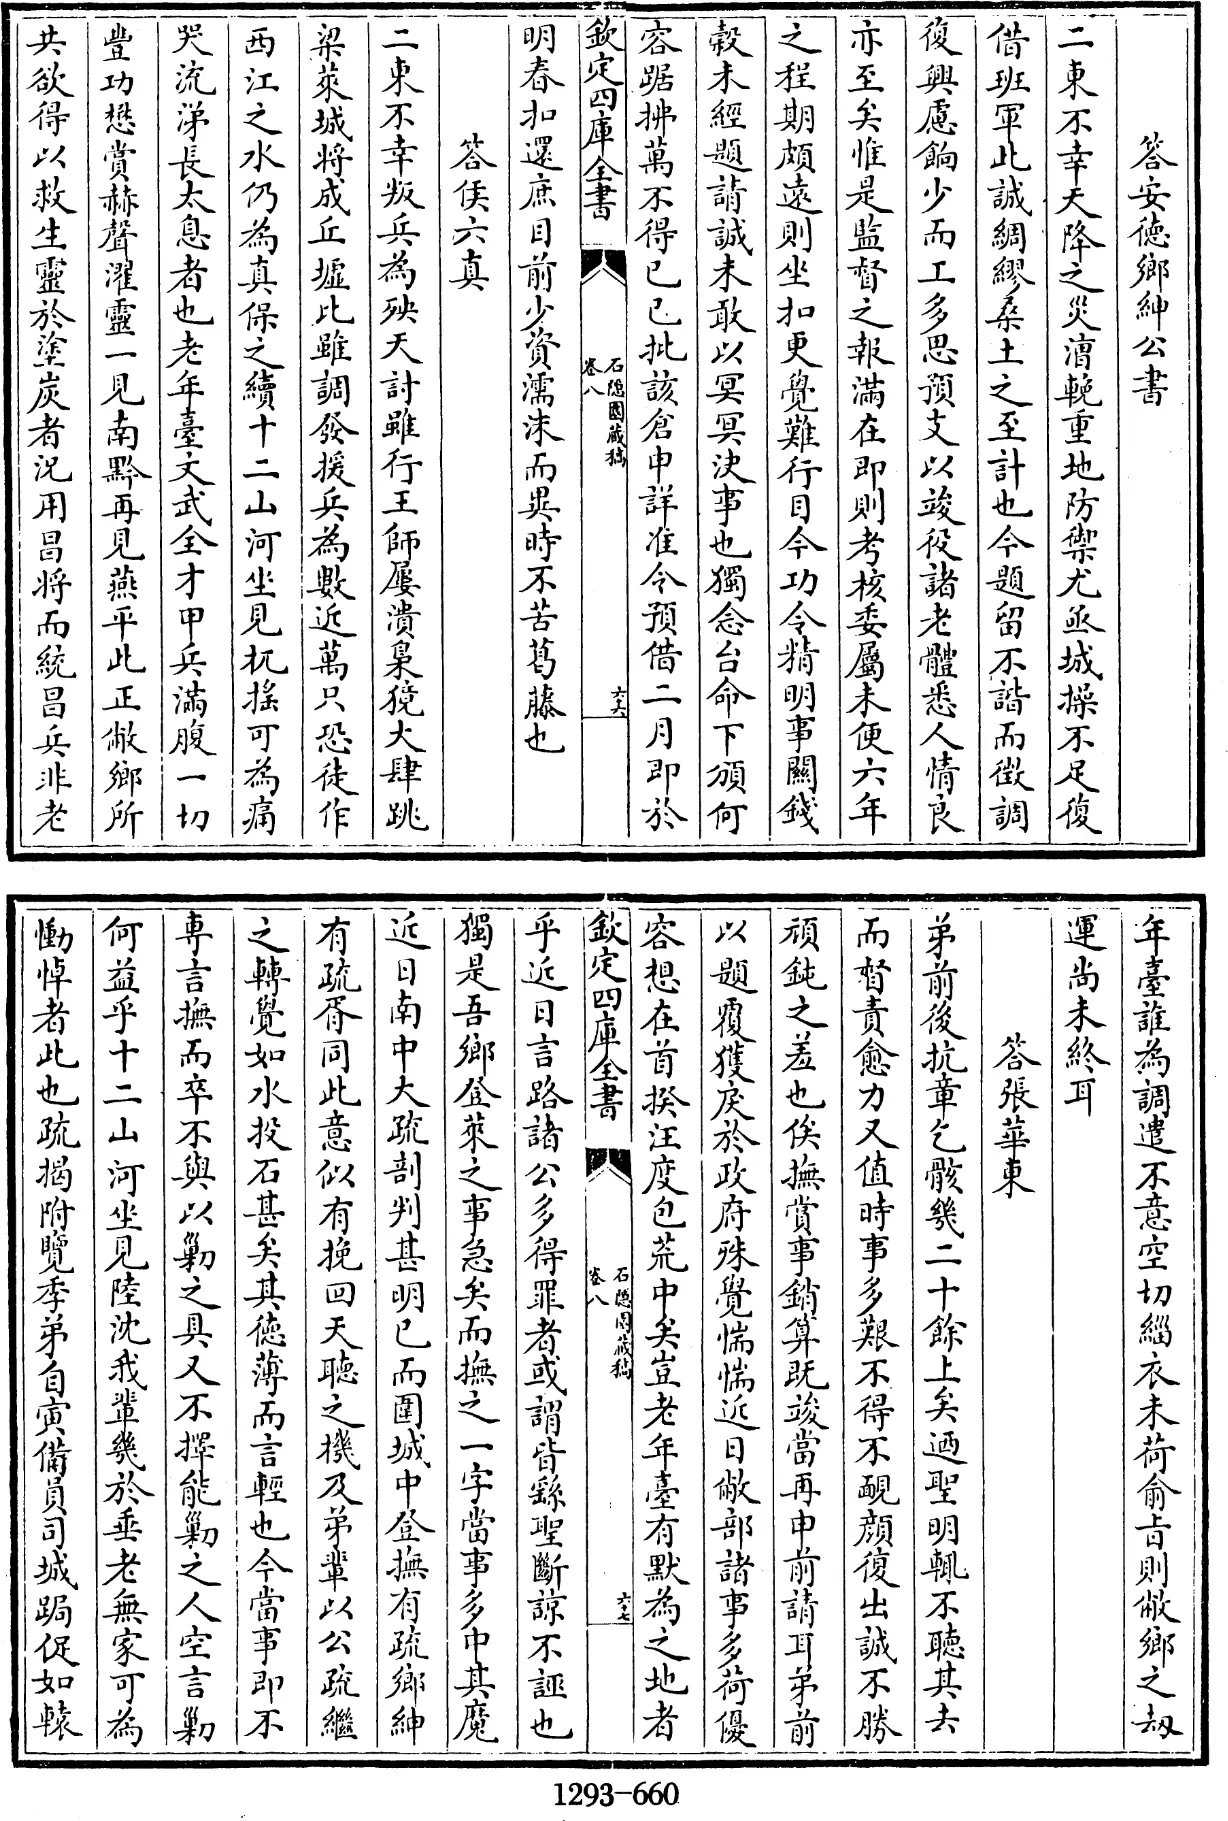 答安徳鄉紳公書
二東不幸天降之災漕輓重地防禦尤亟城操不足復
借班軍此誠綢繆桑土之至計也今題留不諧而徴調
復興慮餉少而工多思預支以竣役諸老體悉人情良
亦至矣惟是監督之報滿在即則考核委屬未便六年
之程期頗遠則坐扣更覺難行目今功令精明事闗錢
穀未經題請誠未敢以冥冥決事也獨念台命下頒何
容踞拂萬不得已已批該倉申詳准令預借二月即於
欽定四庫全書
石隱園藏稿
卷八
六十六
明春扣還庶目前少資濡沫而異時不苦葛藤也
答侯六真
二東不幸叛兵為殃天討雖行王師屢潰梟獍大肆跳
梁萊城將成丘墟比雖調發援兵為數近萬只恐徒作
西江之水仍為真保之續十二山河坐見扤揺可為痛
哭流涕長太息者也老年臺文武全才甲兵滿腹一切
豐功懋賞赫聲濯靈一見南黔再見燕平此正敝鄉所
共欲得以救生靈於塗炭者況用昌將而統昌兵非老
年臺誰為調遣不意空切緇衣未荷俞㫖則敝鄉之刼
運尚未終耳
答張華東
弟前後抗章乞骸幾二十餘上矣迺聖明輒不聽其去
而督責愈力又值時事多艱不得不靦顔復出誠不勝
頑鈍之羞也俟撫賞事銷算既竣當再申前請耳弟前
以題覆獲戾於政府殊覺惴惴近日敝部諸事多荷優
容想在首揆汪度包荒中矣豈老年臺有默為之地者
欽定四庫全書
石隱園藏稿
卷八
六十七
乎近日言路諸公多得罪者或謂皆繇聖斷諒不誣也
獨是吾鄉登萊之事急矣而撫之一字當事多中其魔
近日南中大疏剖判甚明已而圍城中登撫有疏鄉紳
有疏胥同此意似有挽回天聽之機及弟輩以公疏繼
之轉覺如水投石甚矣其徳薄而言輕也今當事即不
專言撫而卒不與以勦之具又不擇能勦之人空言勦
何益乎十二山河坐見陸沈我輩幾於垂老無家可為
慟悼者此也疏揭附覽季弟自寅備員司城跼促如轅
1293-660